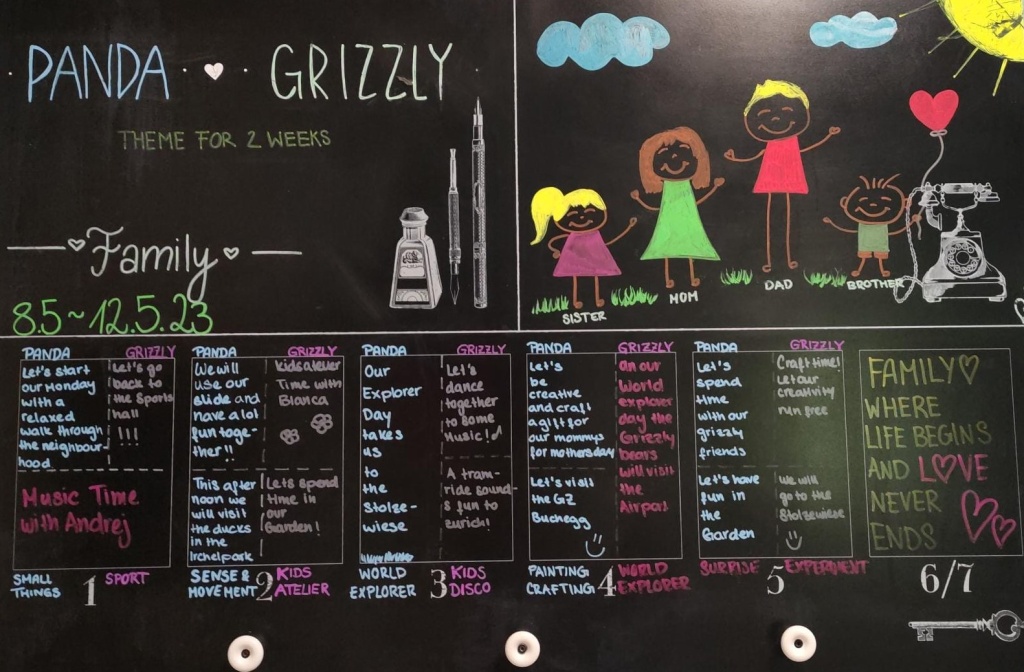 PANDA GRIZZLY
THEME FOR 2 WEEKS
Family
8.5~12.5.23
SISTER
MOM
DAD
BROTHER
PANDA
Let's start
our Monday
with a
relaxed
walk through
the neighbour-
hood
GRIZZLY
Let's go
back to
the Sports
hall
!!!
Music Time
with Andrej
SMALL
THINGS
1
SPORT
PANDA
We will
use our
slide and
have a lot
fun toge-
ther!!
GRIZZLY
kids atelier
Time with
Bianca
This after
noon we
will visit
the ducks
in the
Irchelpark
Lets spend
time in
our
Garden!
SENSE &
MOVEMENT
2
KIDS
ATELIER
PANDA
Our
Explorer
Day
takes
us
to
the
Stolze-
wiese
GRIZZLY
Let's
dance
together
to some
Music!
A tram-
ride sound-
s fun to
zurich!
WORLD
EXPLORER
3
KIDS
DISCO
PANDA
Let's
be
creative
and craft
a gift for
our mommys
for mothersday
Let's visit
the GZ
Buchegg
GRIZZLY
an our
World
explorer
day the
Grizzly
bears
will visit
the
Airport
PAINTING
CRAFTING
4
WORLD
EXPLORER
PANDA
Let's
spend
time
with our
grizzly
friends
GRIZZLY
Craft time!
Let our
creativity
run free
Let's have
fun in
the
Garden
We will
go to the
Stolzewiese
SURPRISE
5
EXPERIMENT
FAMILY
WHERE
LIFE BEGINS
AND LOVE
NEVER
ENDS
6/7